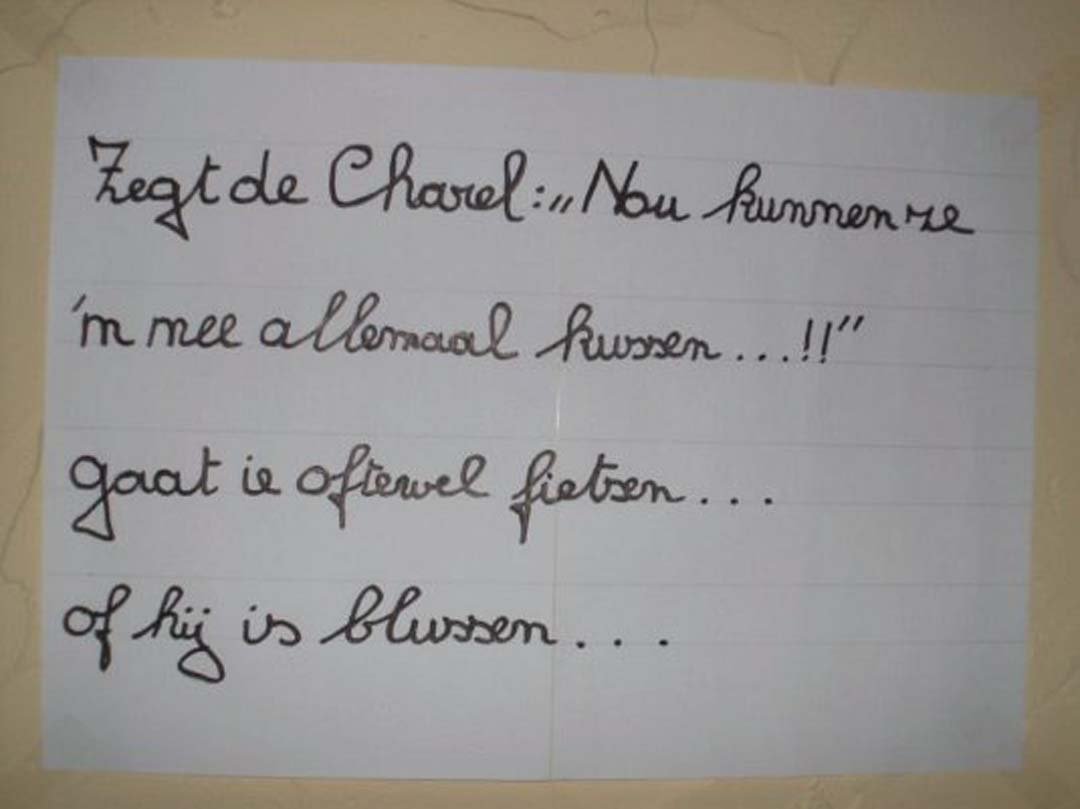 Zegt de Charel: „Nou kunnen ze
'm mee allemaal kussen...!!"
gaat ie oftewel fietsen...
of hij is blussen...